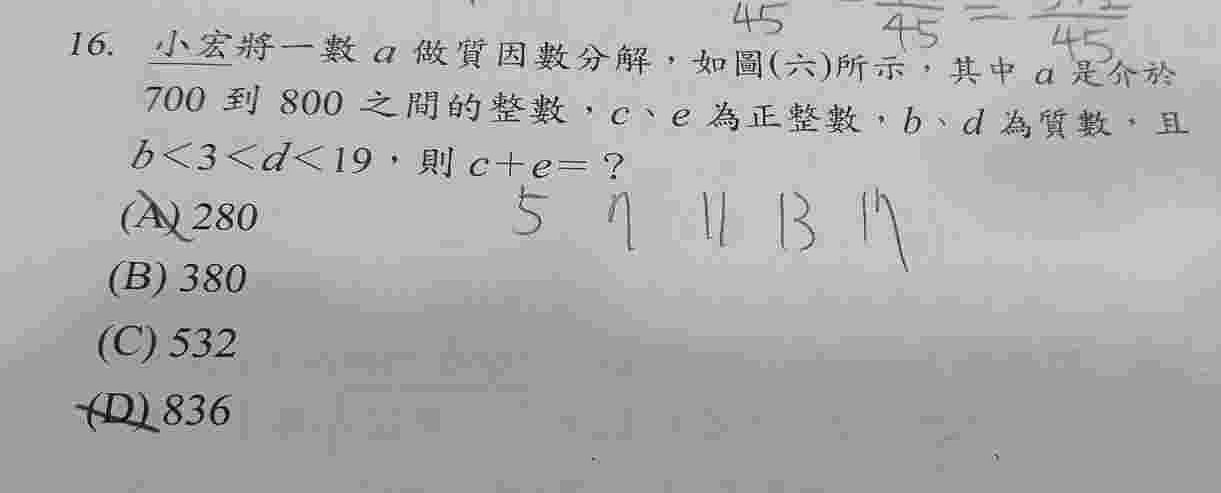 45 45 = 45
16. 小宏將一數 a 做質因數分解，如圖(六)所示，其中 a 是介於
700 到 800 之間的整數，c、e 為正整數，b、d 為質數，且
b＜3＜d＜19，則 c＋e＝？
(A) 280
5 7 11 13 17
(B) 380
(C) 532
(D) 836